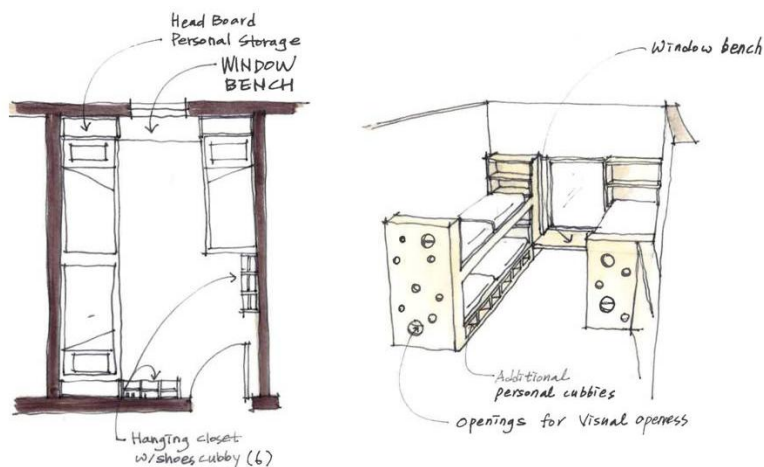 Head Board
Personal Storage
WINDOW
BENCH
Hanging closet
w/shoes cubby (6)
Window bench
Additional
personal cubbies
openings for Visual openess